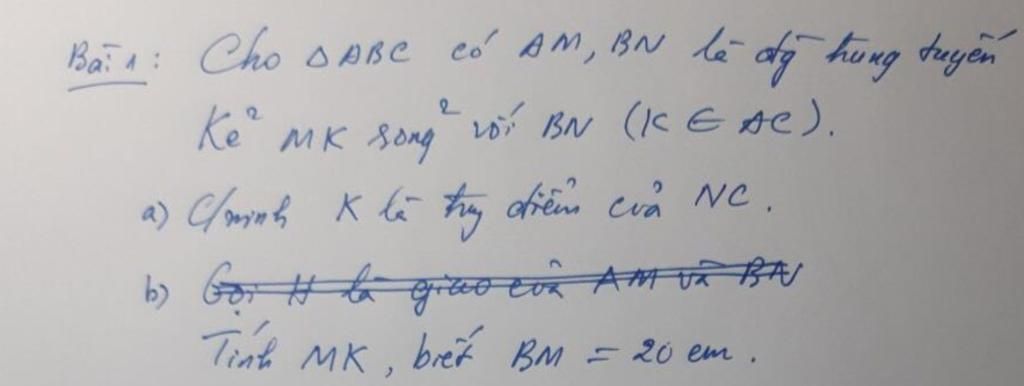 Bài 1: Cho △ABC có AM, BN là đg trung tuyến
Kẻ MK song² với BN (K ∈ AC).
a) C/minh K là trg điểm của NC.
b) Gọi H là giao của AM và BN
Tính MK, biết BM = 20 cm.